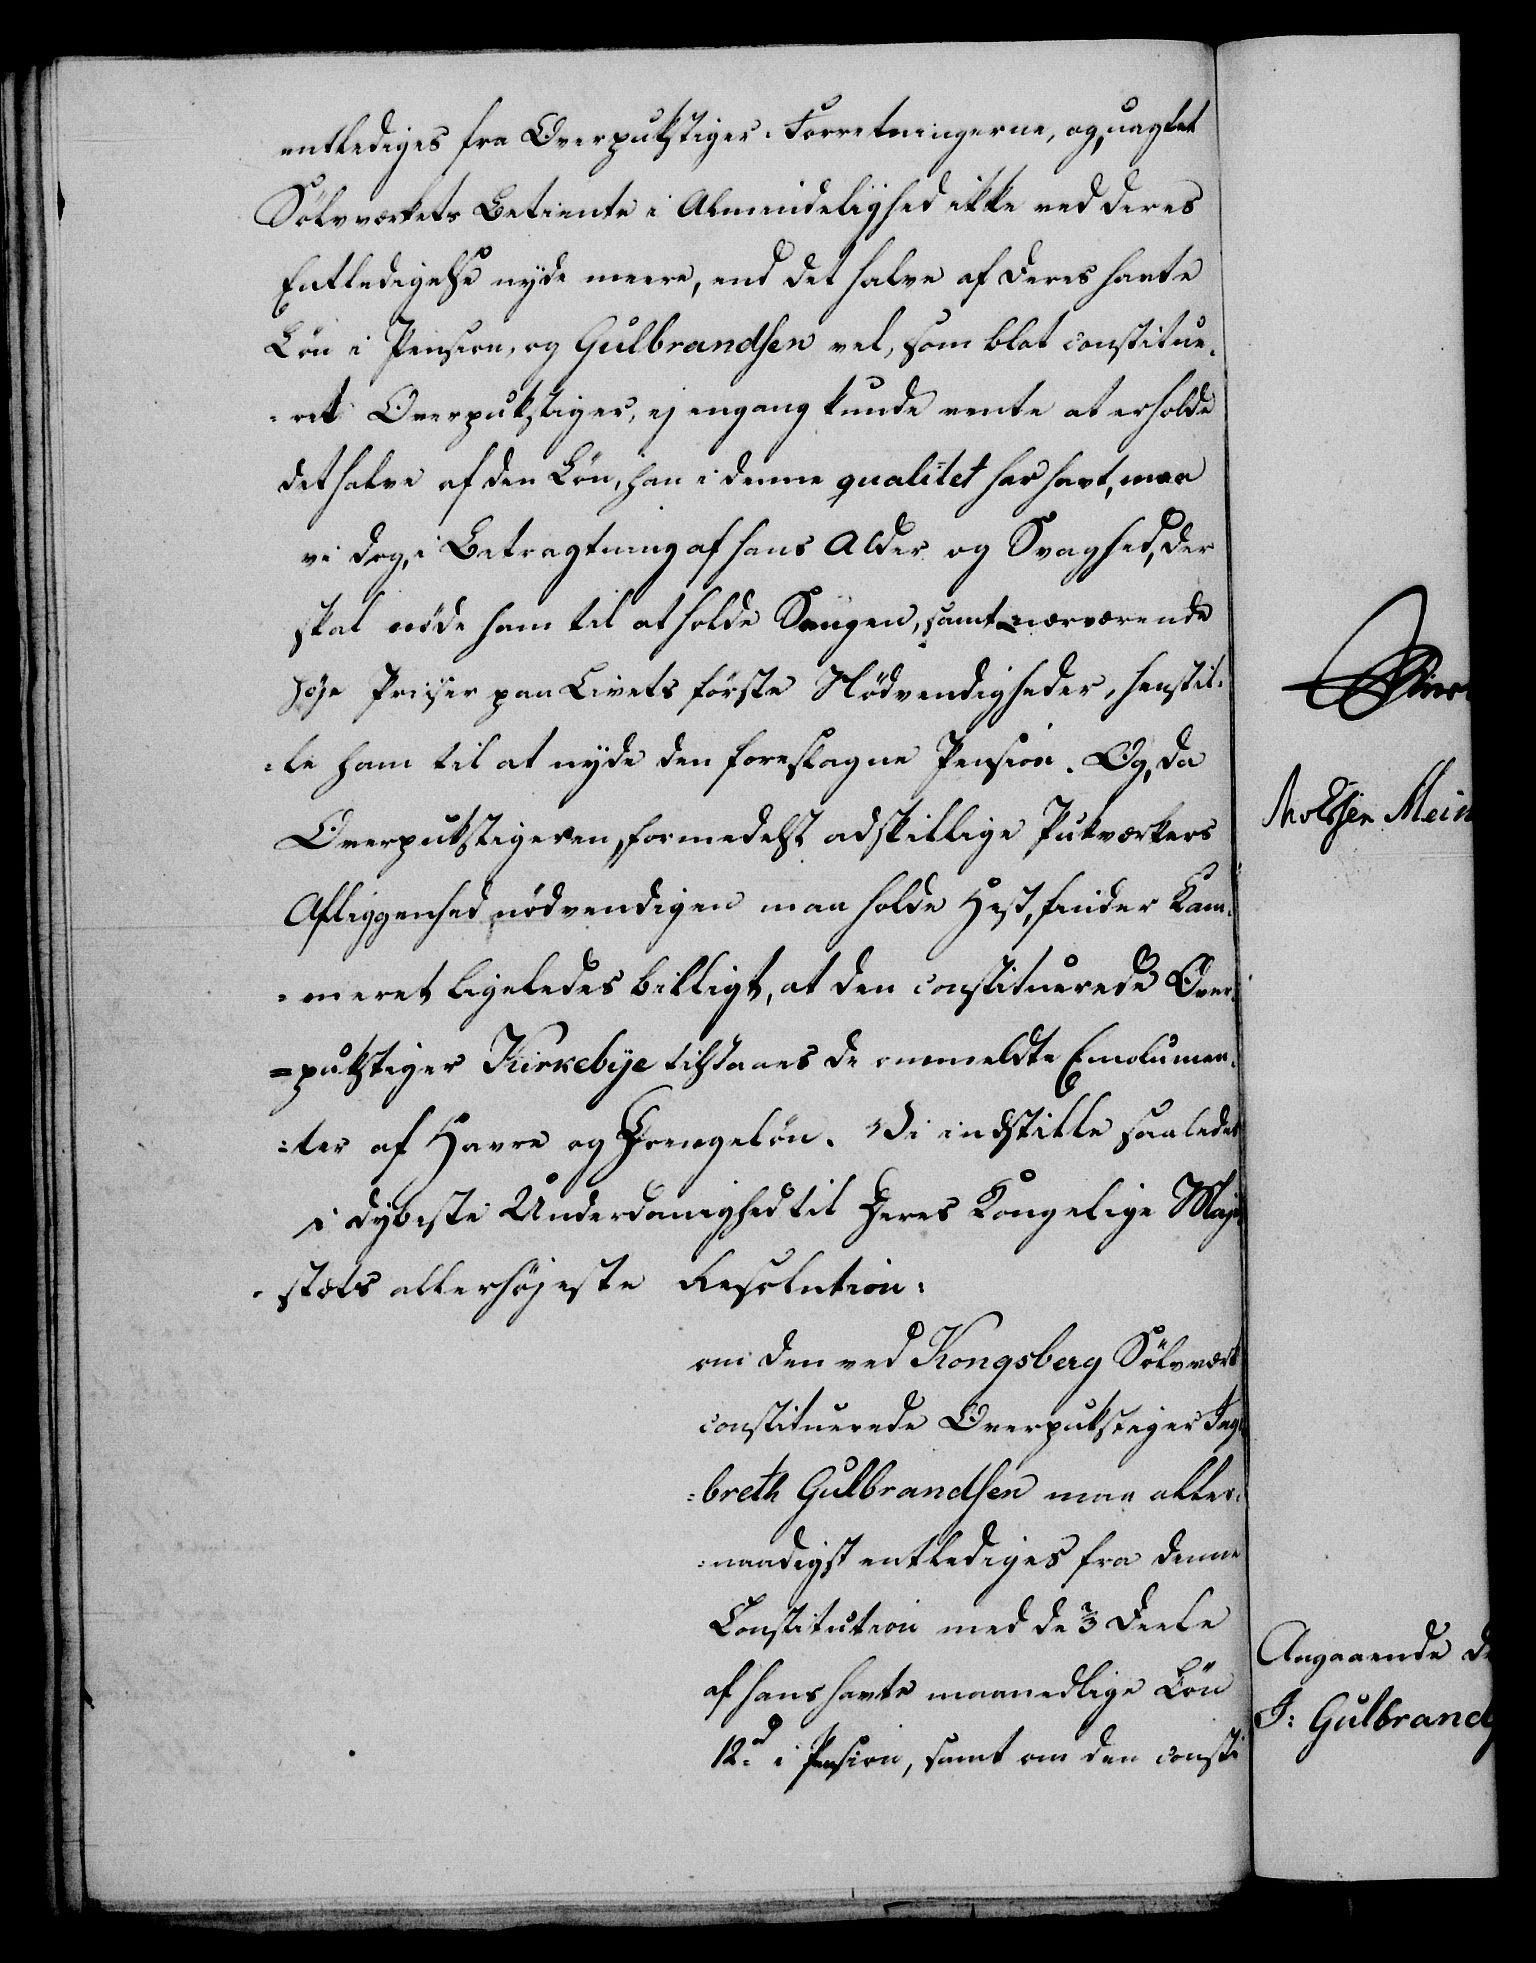 entlediges fra Overpukstiger-Forretningerne, og, uagtet
Sölvværkets Betiente i Almindelighed ikke ved deres
Entledigelse nyde meere, end det halve af deres havte
Lön i Pension, og Gulbrandsen vel, som blot constitue-
-ret Overpukstiger, ej engang kunde vente at erholde
det halve af den Lön, han i denne qualitet har havt, maa
vi dog, i Betragtning af hans Alder og Svaghed, der
skal nöde ham til at holde Sengen, samt nærværende
höje Priiser paa Livets förste Nödvendigheder, henstil-
-le ham til at nyde den foreslagne Pension. Og, da
Overpukstigeren, formedelst adskillige Pukværkers
Afliggenhed, nödvendigen maa holde Hest, finder Kam-
-meret ligeledes billigt, at den constituerede Over-
=pukstiger Kirkebye tilstaaes de ommeldte Emolumen-
-ter af Havre og Drengelön. Vi indstille saaledes
i dybeste Underdanighed til Deres Kongelige Maje
-stæts allerhöjeste Resolution:
om den ved Kongsberg Sölvværk
constituerede Overpukstiger Ing-
-breth Gulbrandsen maa aller-
-naadigst entlediges fra denne
Constitution med de 2/3 Deele
af hans havte maanedlige Lön
12 d i Pension, samt om den consti
Angaaende de
I: Gulbrands